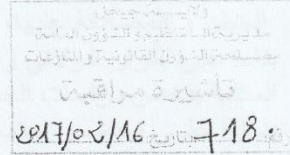 ولايـــة جيجل
مديرية التنظيم و الشؤون العامة
مصلحة الشؤون القانونية و المنازعات
تأشيرة مراقبة
718 بتاريخ 2017/02/16